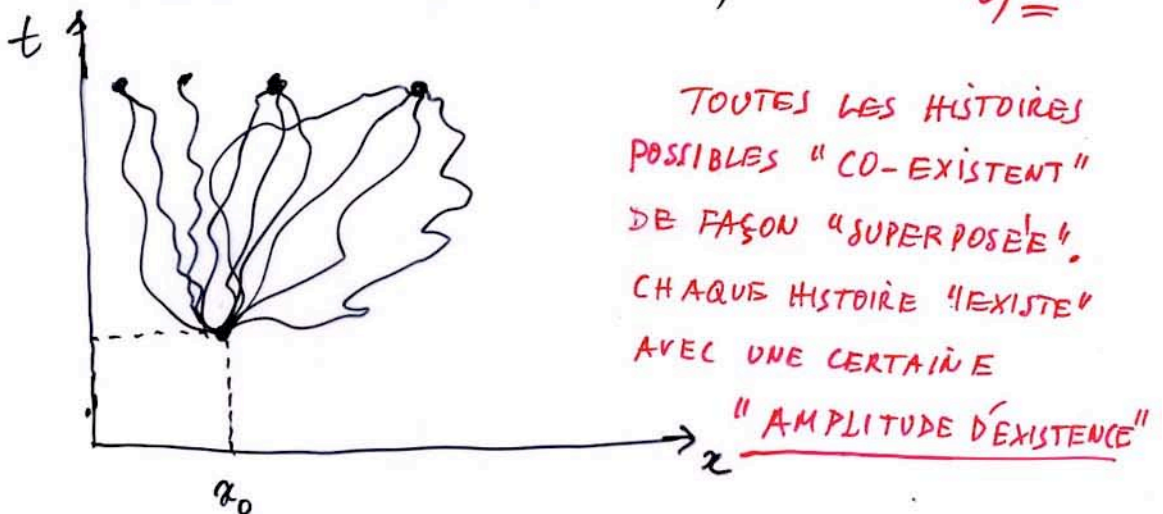 t
TOUTES LES HISTOIRES
POSSIBLES "CO-EXISTENT"
DE FAÇON "SUPERPOSÉE".
CHAQUE HISTOIRE "EXISTE"
AVEC UNE CERTAINE
"AMPLITUDE D'EXISTENCE"
x
x₀